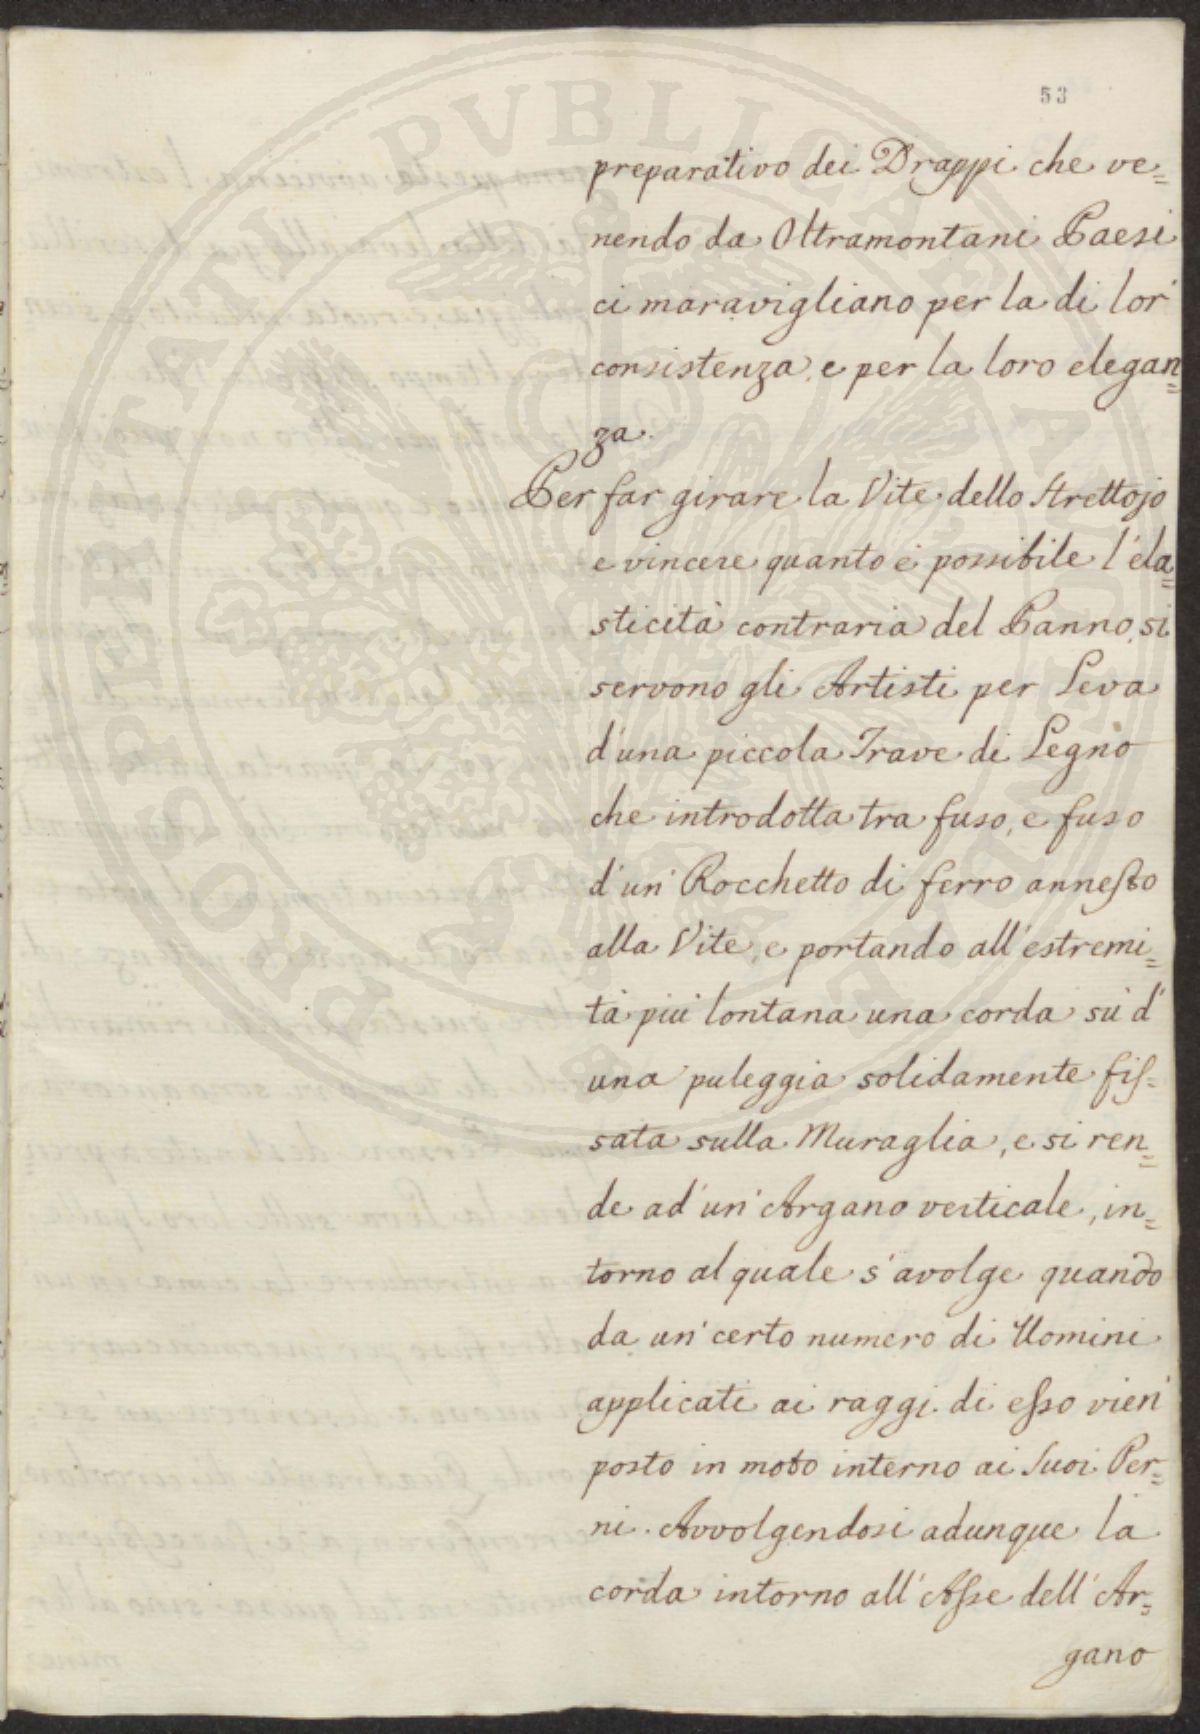 53
preparativo dei Drappi che ve=
nendo da Oltramontani Paesi
ci maravigliano per la di lor'
consistenza, e per la loro elegan=
za.
Per far girare la Vite dello Strettojo
e vincere quanto è possibile l'ela=
sticità contraria del Panno, si
servono gli Artisti per Leva
d'una piccola Trave di Legno
che introdotta tra fuso, e fuso
d'un' Rocchetto di ferro annesso
alla Vite, e portando all'estremi=
tà più lontana una corda sù d'
una puleggia solidamente fis=
sata sulla Muraglia, e si ren=
de ad'un' Argano verticale, in=
torno al quale s'avolge quando
da un' certo numero di Uomini
applicati ai raggi di esso vien'
posto in moto interno ai Suoi Per=
ni. Avvolgendosi adunque la
corda intorno all'Asse dell'Ar=
gano
PROSPERITATI PVBLICAE AVGENDAE